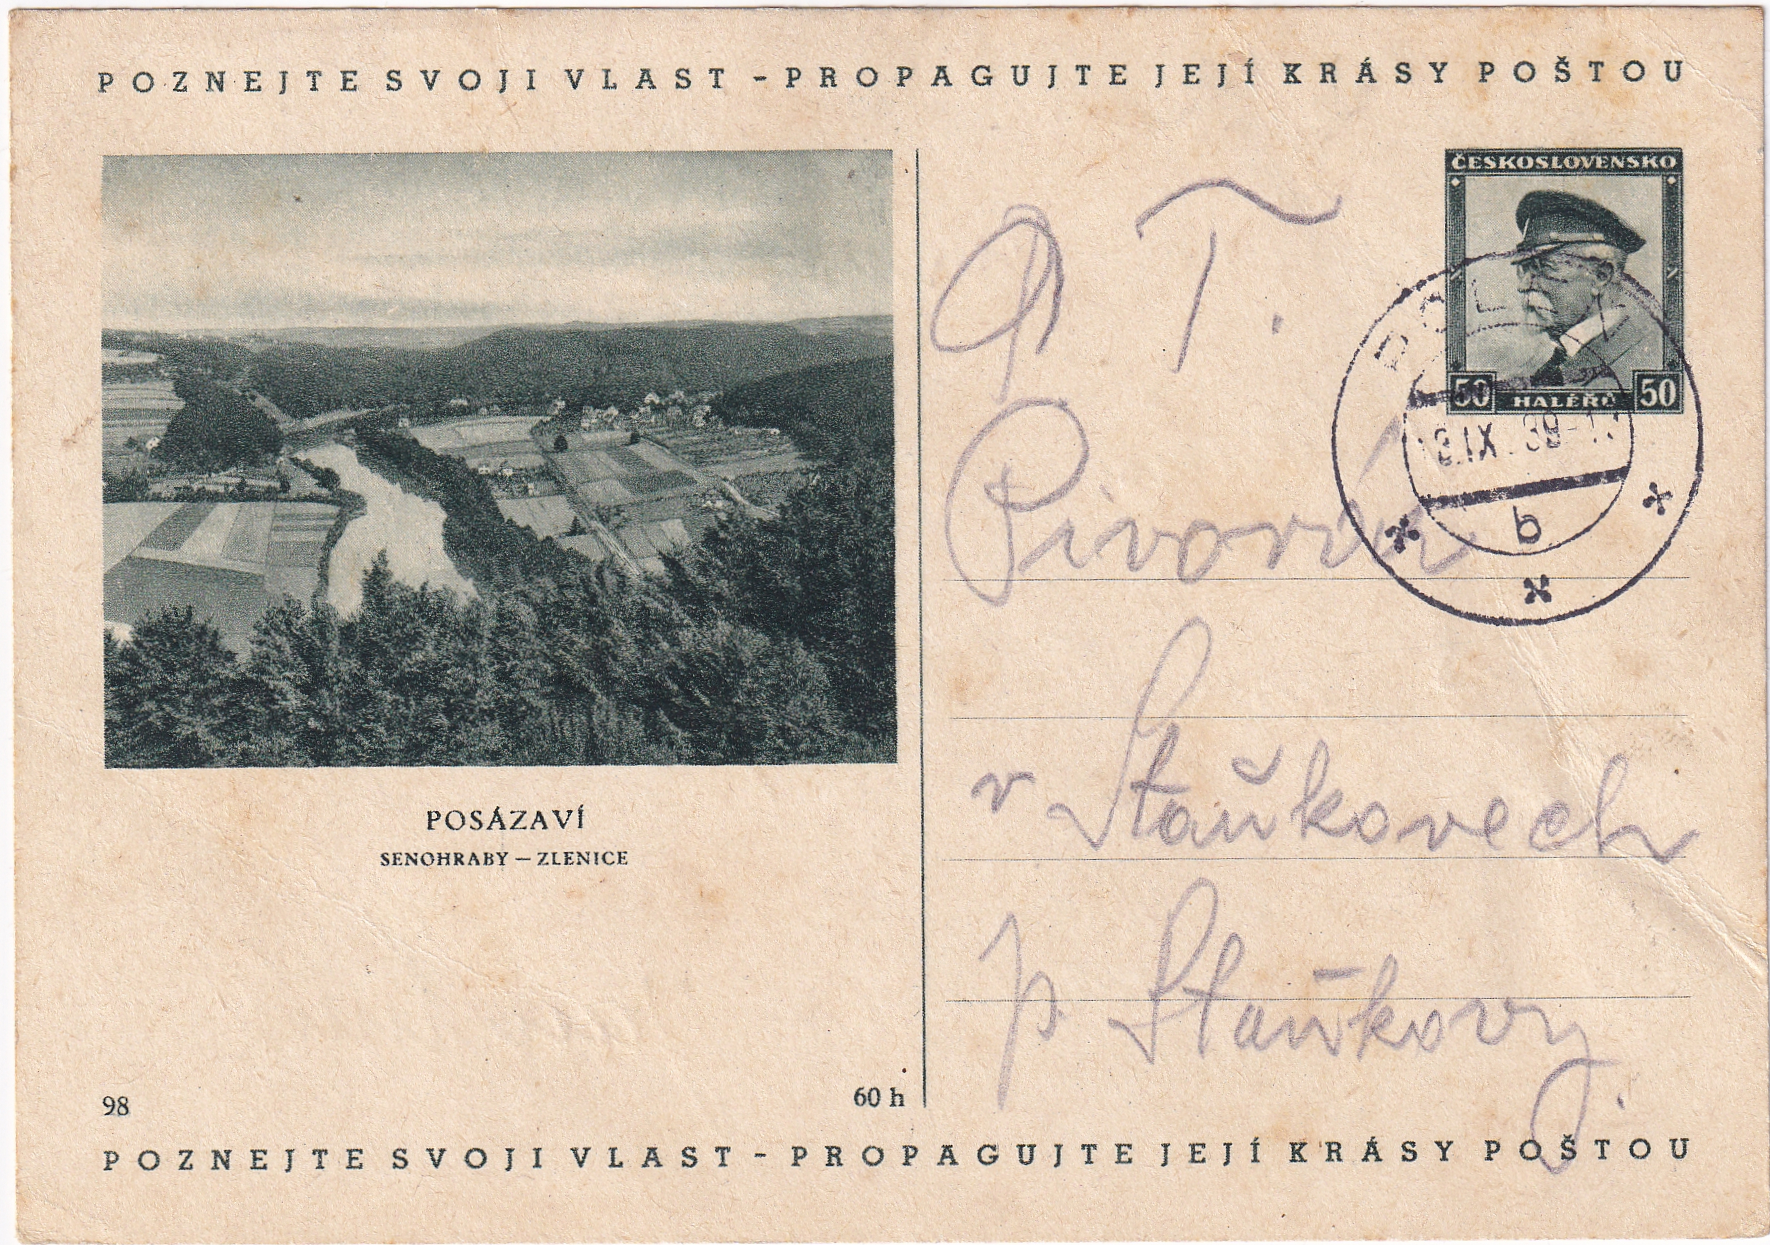 POZNEJTE SVOJI VLAST - PROPAGUJTE JEJÍ KRÁSY POŠTOU
ČESKOSLOVENSKO
50 HALÉŘŮ 50
b
P. T.
Pivovár
v Staňkovech
p. Staňkovy.
POSÁZAVÍ
SENOHRABY – ZLENICE
98
60 h
POZNEJTE SVOJI VLAST - PROPAGUJTE JEJÍ KRÁSY POŠTOU